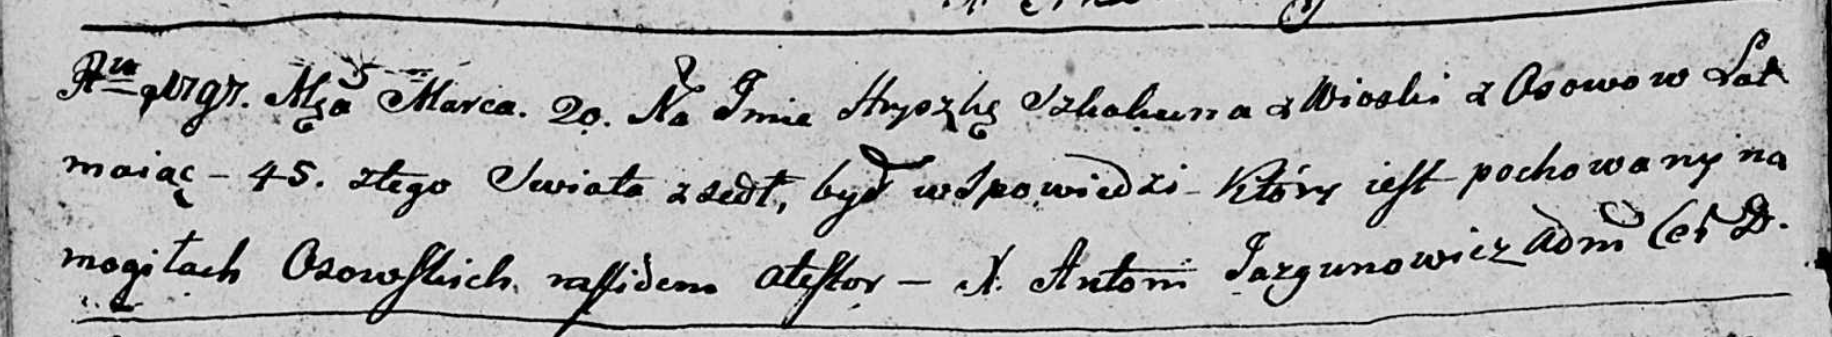 Rku 1797. Mca Marca. 20. Na Imie Hryszkę Szkakuna z Wioski z Osowo w Lat
maiąc – 45. ztego Swiata zszedł, był w Spowiedzi – Który iest pochowany na
mogiłach Osowskich. atestor – X. Antoni Jazgunowicz Adm